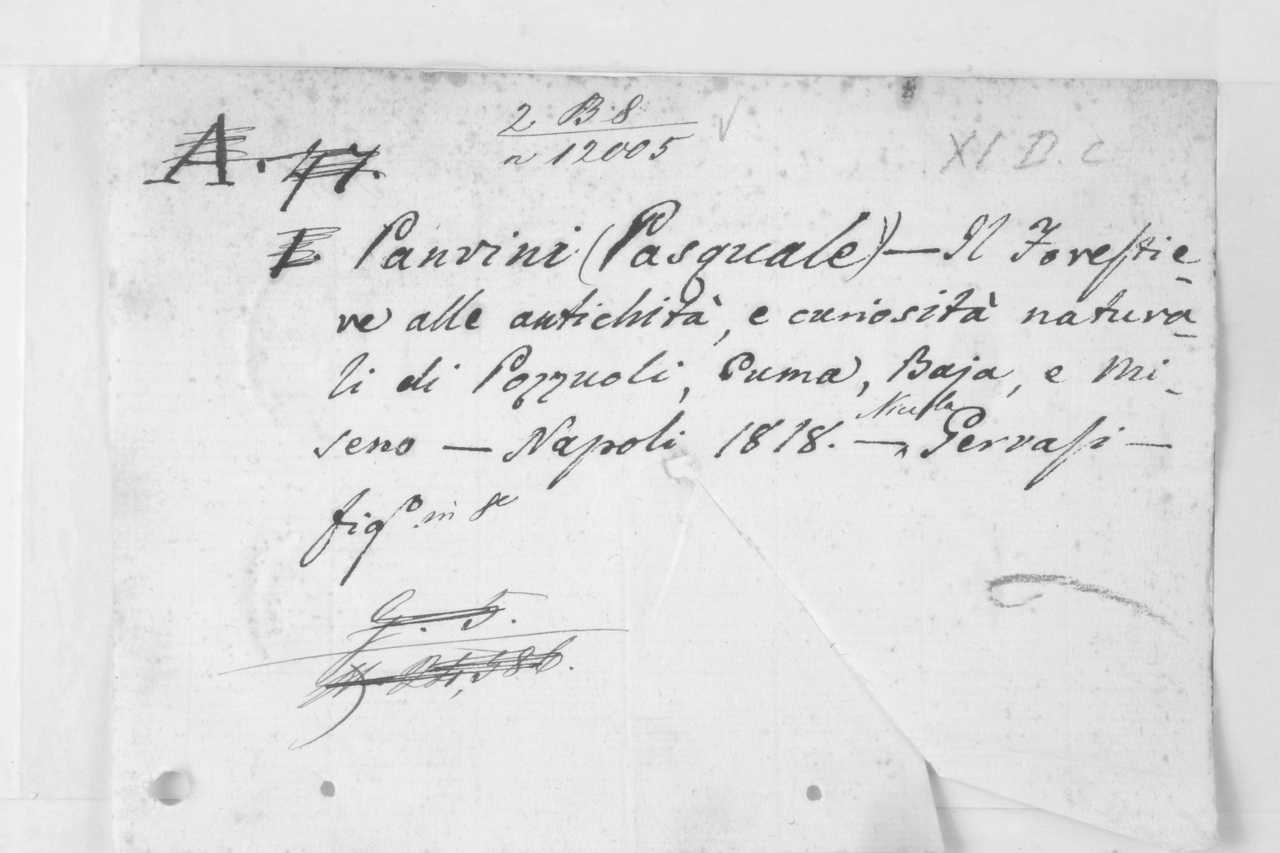 2 B 8
n 12005
XI D. c
A. 47.
Panvini (Pasquale) — Il Forestie-
re alle antichità, e curiosità natura-
li di Pozzuoli, Cuma, Baja, e Mi-
seno — Napoli 1818. — Nicola Gervasi —
fig.º in 8º
G. 5.